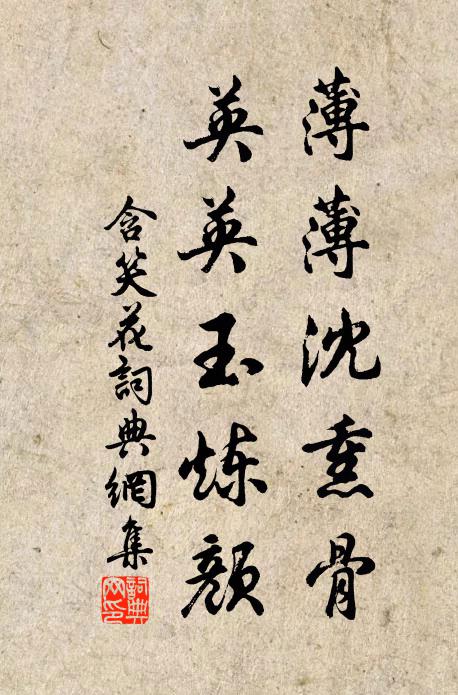 薄薄沈熏骨
英英玉炼颜
含笑花詞典網集
詞典